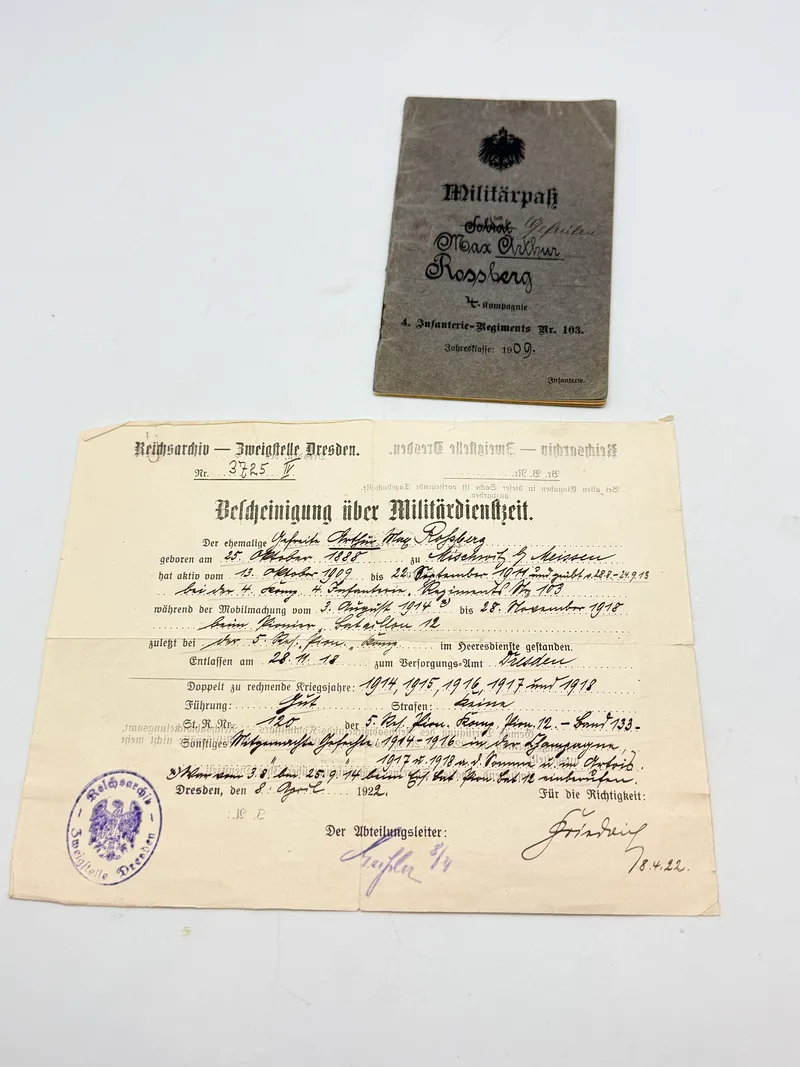 Militärpaß
des
Soldat Gefreiten
Max Arthur
Rossberg
4. Kompagnie
4. Infanterie-Regiments Nr. 103.
Jahresklasse: 1909.
Infanterie.
Reichsarchiv — Zweigstelle Dresden.
Nr. 3725 IV
Bescheinigung über Militärdienstzeit.
Der ehemalige Gefreite Arthur Max Roßberg
geboren am 25. Oktober 1888 zu Mischwitz b/ Meissen
hat aktiv vom 13. Oktober 1909 bis 22. September 1911 und geübt v. 28.8.-24.9.13
bei der 4. Komp. 4. Infanterie-Regiments No 103
während der Mobilmachung vom 3. August 1914 x) bis 28. November 1918
beim Pionier-Bataillon 12
zuletzt bei der 5. Res. Pion. Komp. im Heeresdienste gestanden.
Entlassen am 28.11.18 zum Versorgungs-Amt Dresden
Doppelt zu rechnende Kriegsjahre: 1914, 1915, 1916, 1917 und 1918
Führung: Gut Strafen: Keine
St. R. Nr. 120 der 5. Res. Pion. Komp. Pion. 12. - Band 133-
Sonstiges Mitgemachte Gefechte 1914-1916 in der Champagne,
1917 u. 1918 a. d. Somme u. im Artois.
x) War vom 3.8. bis 25.9.14 beim Ers. Bat. Pion. Bat. 12 einberufen.
Dresden, den 8. April 1922.
Für die Richtigkeit:
Der Abteilungsleiter:
Friedrich
8/4
8.4.22.
Reichsarchiv
Zweigstelle Dresden